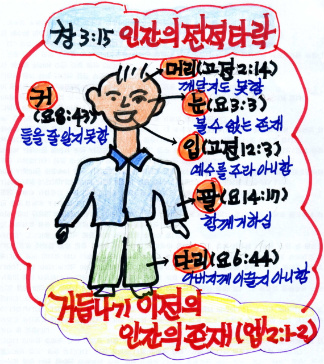 창 3:15 인간의 전적타락
머리(고전2:14)
깨닫지도 못함
귀
(요8:43)
들을 줄 알지못함
눈(요3:3)
볼수 없는 존재
입(고전12:3)
예수를 주라 아니함
팔(요14:17)
함께거하심
다리(요6:44)
아버지께 이끌지 아니함
거듭나기 이전의
인간의 존재(엡2:1-2)